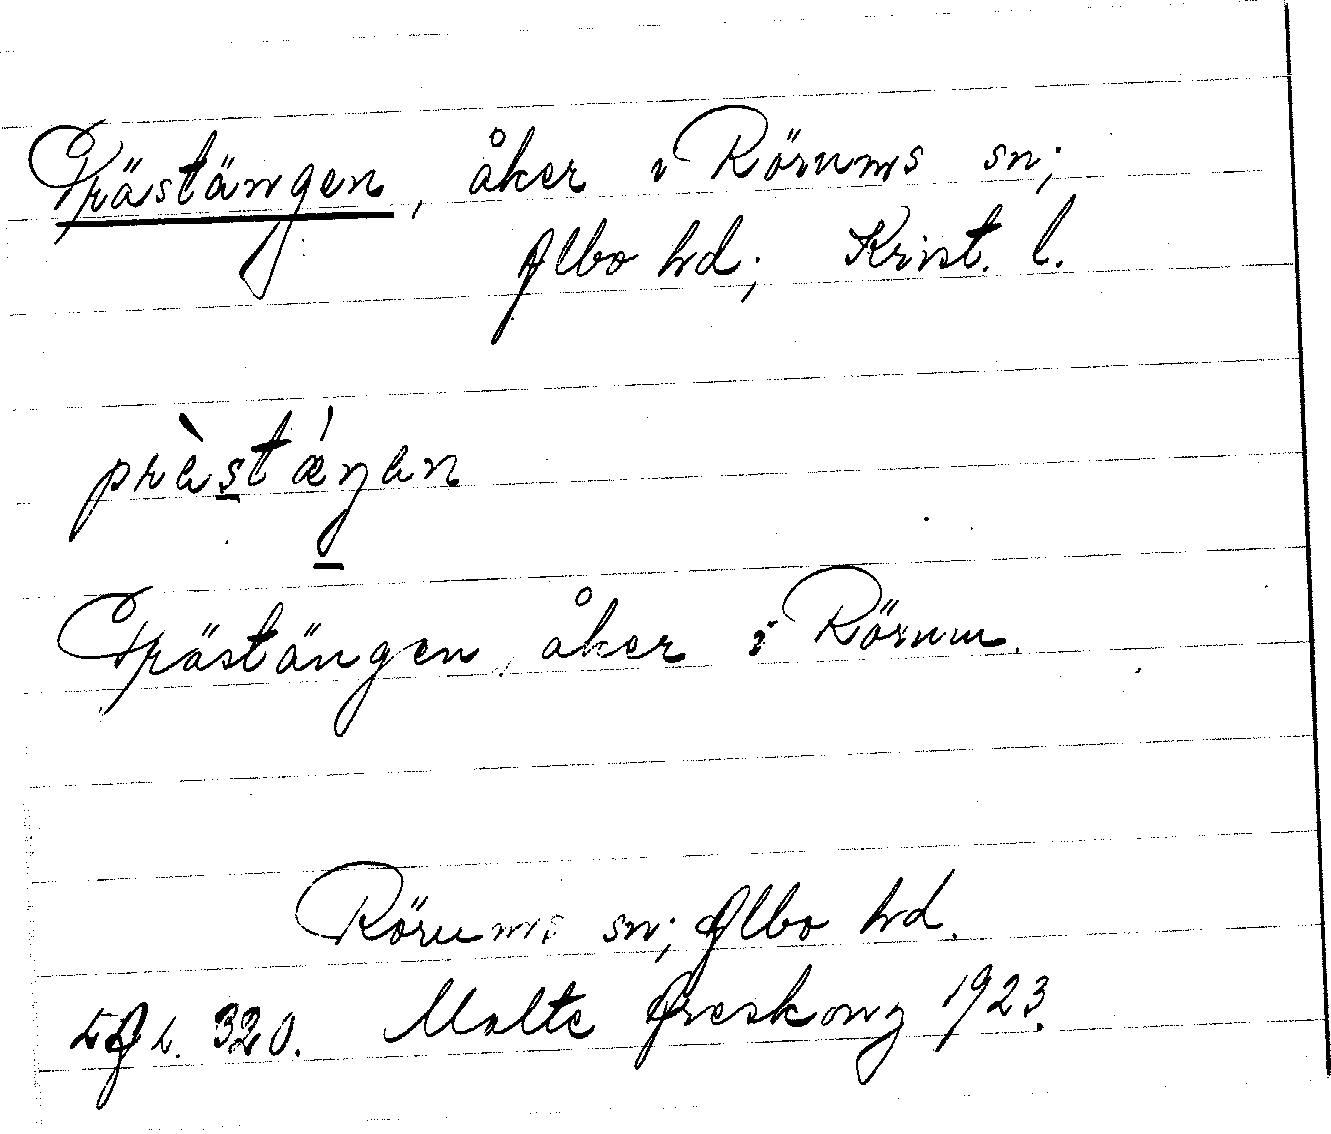 Prästängen, åker i Rörums sn;
Albo hd; Krist. l.
prèstǽŋen
Prästängen, åker i Rörum.
Rörums sn; Albo hd.
LAL. 320. Malte Areskoug 1923.